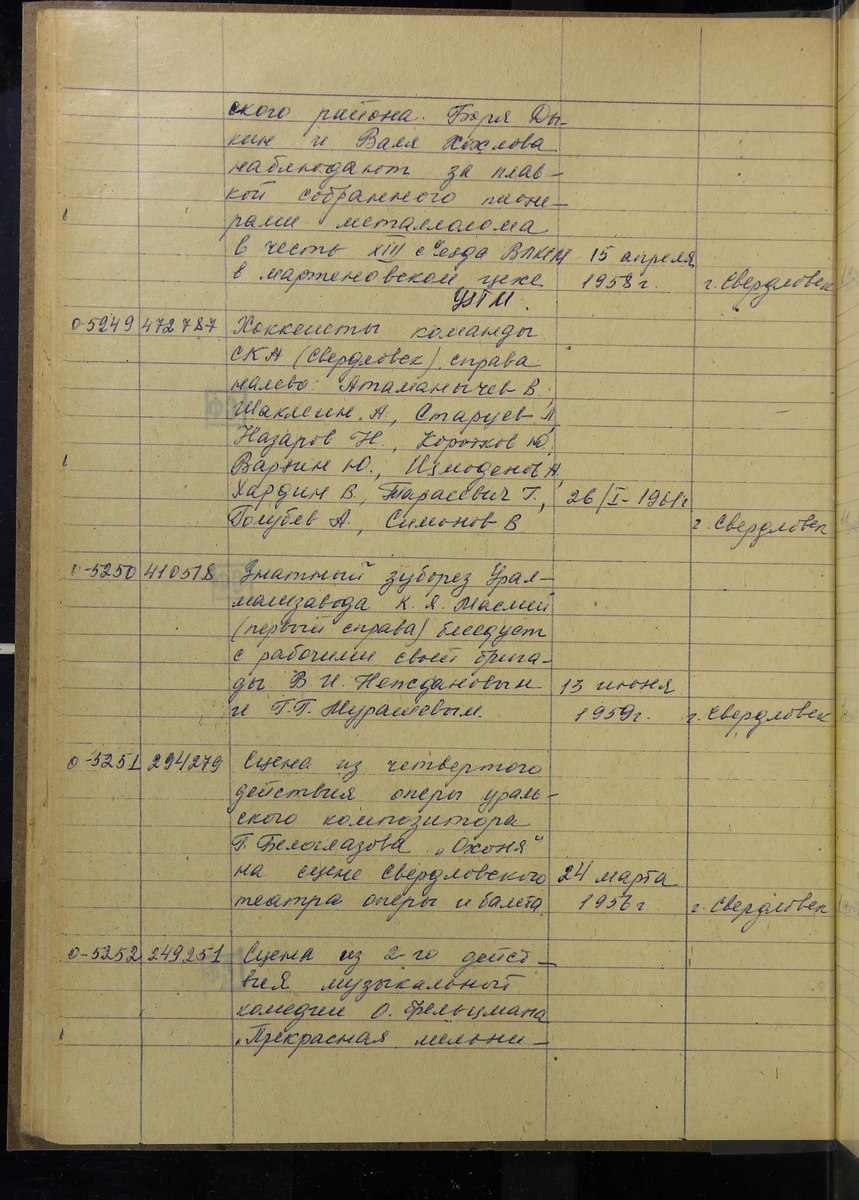 ского района. Боря Ды-
кин и Валя Хохлова
наблюдают за плав-
кой собранного пионе-
рами металлолома
в честь XIII съезда ВЛКСМ 15 апреля
в мартеновском цехе 1958 г. г. Свердловск
УЗТМ.
0-5249 472787 Хоккеисты команды
СКА (Свердловск) справа
налево: Атаманычев В.,
Шаклеин А., Старцев Л.,
Назаров Н., Коротков Ю.
Варнин Ю., Измоденов А,
Хардин В., Тарасевич Г., 26/I-1961г
Голубев А., Симонов В. г. Свердловск
0-5250 410518 Знатный зуборез Урал-
машзавода К. Я. Маслий
(первый справа) беседует
с рабочими своей брига-
ды В. И. Неждановым 13 июня
и Г. Г. Мурашевым. 1959г. г. Свердловск
0-5251 294279 Сцена из четвертого
действия оперы ураль-
ского композитора
Г. Белоглазова „Охоня"
на сцене Свердловского 24 марта
театра оперы и балета 1956 г г. Свердловск
0-5252 249251 Сцена из 2-го дейст-
вия музыкальной
комедии О. Фельцмана
„Прекрасная мельни-